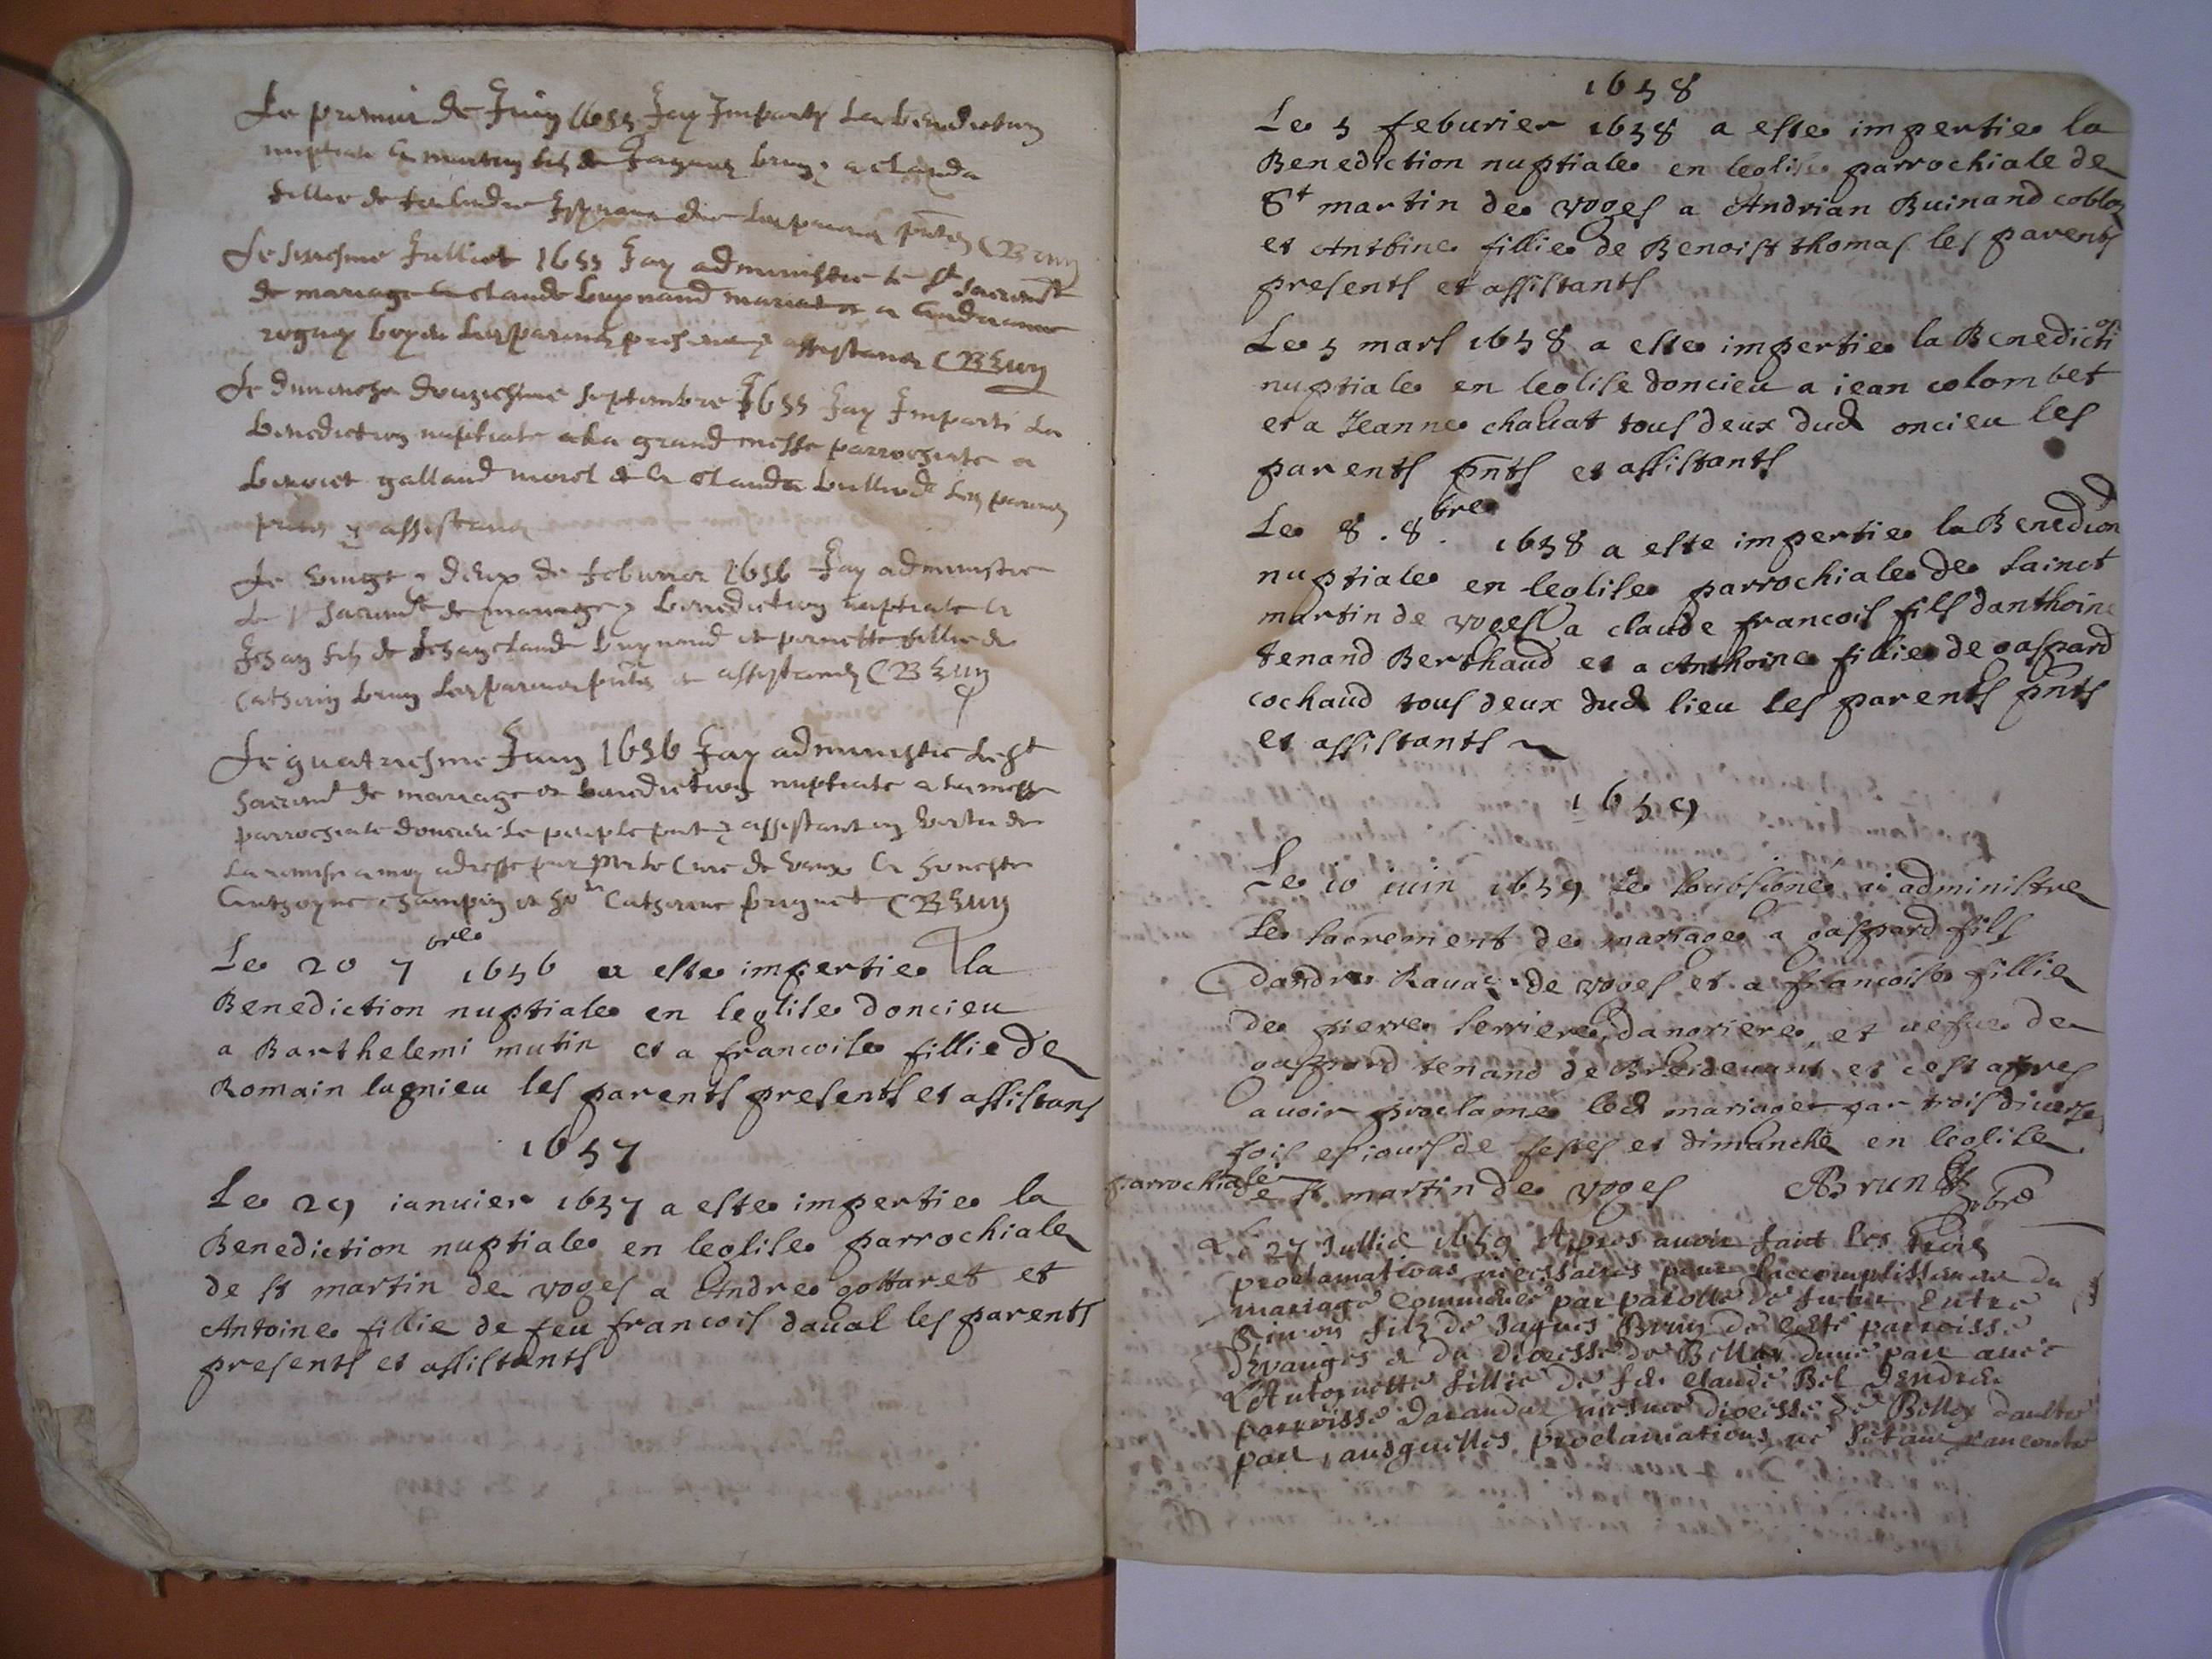 Le premier de Juin 1655 Jay Imparty La benediction
nuptiale a martin fils de Jaques brun & a Clauda
fillie de feu
Le Juilliet 1655 Jay administre le St Sacremt
de mariage a Claude buynand mariat et a Andreanne
les parens presens & assistans CBrun
Le dimenche douziesme Septembre 1655 Jay Imparti La
benediction nuptiale a la grand messe parrochiale a
benoict galland morel et a Clauda les parens
pntes & assistans
Le vingt & deux de feburier 1656 Jay administre
le St Sacremt de mariage & benediction nuptiale a
Jehan fils de Jehan Claude buynand et pernette fillie de
Catherin brun les parens pntes et assistans CBrun
Le quatriesme Juin 1656 Jay administre le St
Sacremt de mariage et benediction nuptiale a la messe
parrochiale doncieu le peuple pnt & assistant en vertu de
la remise a moy adresse par Mr le Cure de Vaux a honeste
Anthoyne champin et Catherine CBrun
Le 20 7bre 1656 a este impertie la
Benediction nuptiale en leglise doncieu
a Barthelemi mutin et a francoise fillie de
Romain lagnieu les parents presents et assistans
1657
Le 29 ianuier 1657 a este impertie la
Benediction nuptiale en leglise parrochiale
de st martin de voges a Andre gottaret et
Antoine fillie de feu francois daual les parents
presents et assistants
1658
Le 5 feburier 1658 a este impertie la
Benediction nuptiale en leglise parrochiale de
St martin de voges a Andrian Buinand cobloz
et Anthine fillie de Benoist thomas les parents
presents et assistants
Le 5 mars 1658 a este impertie la Benedicti
nuptiale en leglise doncieu a iean colombet
et a Jeanne chauat tous deux dud oncieu les
parents pnts et assistants
Le 8 . 8bre . 1658 a este impertie la Benedion
nuptiale en leglise parrochiale de sainct
martin de voges a claude francois fils danthoine
tenand Berthaud et a Anthoine fillie de gaspard
cochaud tous deux dud lieu les parents pnts
et assistants
1659
Le 10 iuin 1659 Je soubsigné ai administre
le sacrement de mariage a gaspard fils
dandre Rauaz de voges et a francoise fillie
de pierre serriere danoriere et uefue de
gaspard tenand de Breidevant et cest apres
auoir proclame led mariage par trois diuerses
fois es iours de festes et dimanche en leglise
parrochiale
de st martin de voges CBrun pbre
Le 27 Jullie 1659 Apres auoir fait les trois
proclamations necessaires pour laccomplissement du
mariage Commence par parolle de futur Entre
Simon filz de Jaques Brun de ceste parroisse
Devanges & du diocesse de Belley dune part auec
Antoynette fillie de feu claude Bel Dendrie
parroisse Darandaz mesme diocesse de Belley daultre
part, ausquelles proclamations ne sestant rancontre